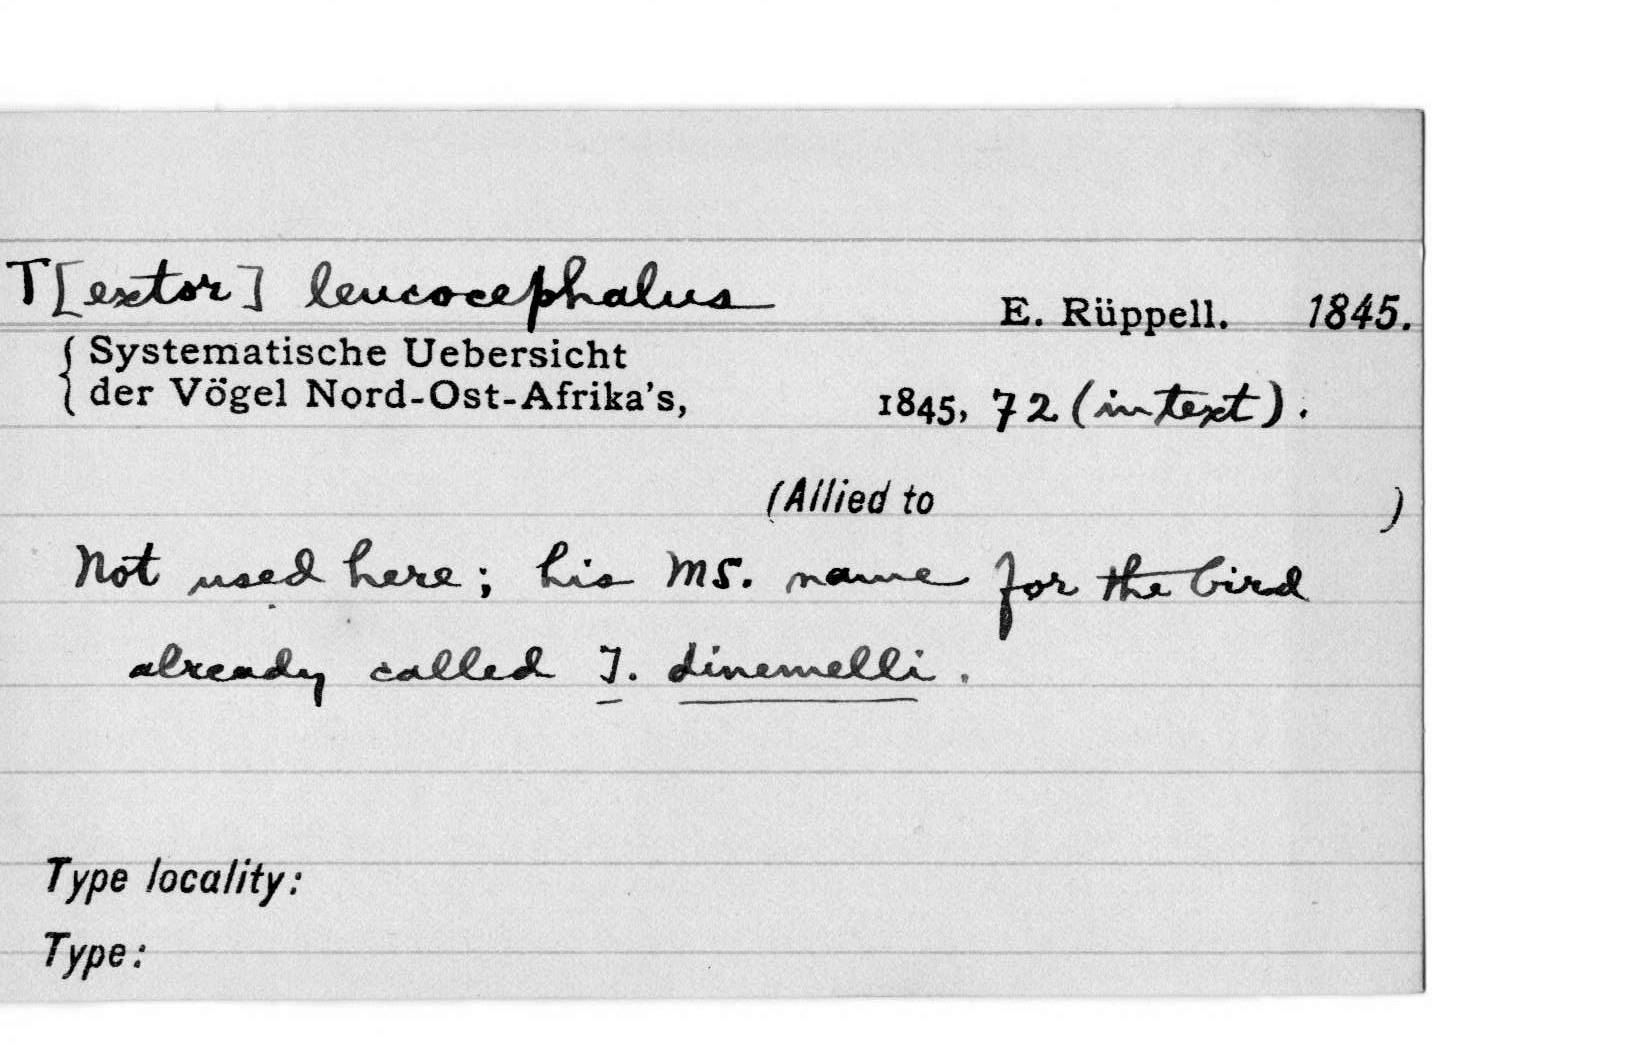 T[extor] leucocephalus E. Rüppell. 1845.
Systematische Uebersicht
der Vögel Nord-Ost-Afrika's, 1845, 72 (in text).
(Allied to )
Not used here; his MS. name for the bird
already called T. dinemelli.
Type locality:
Type: